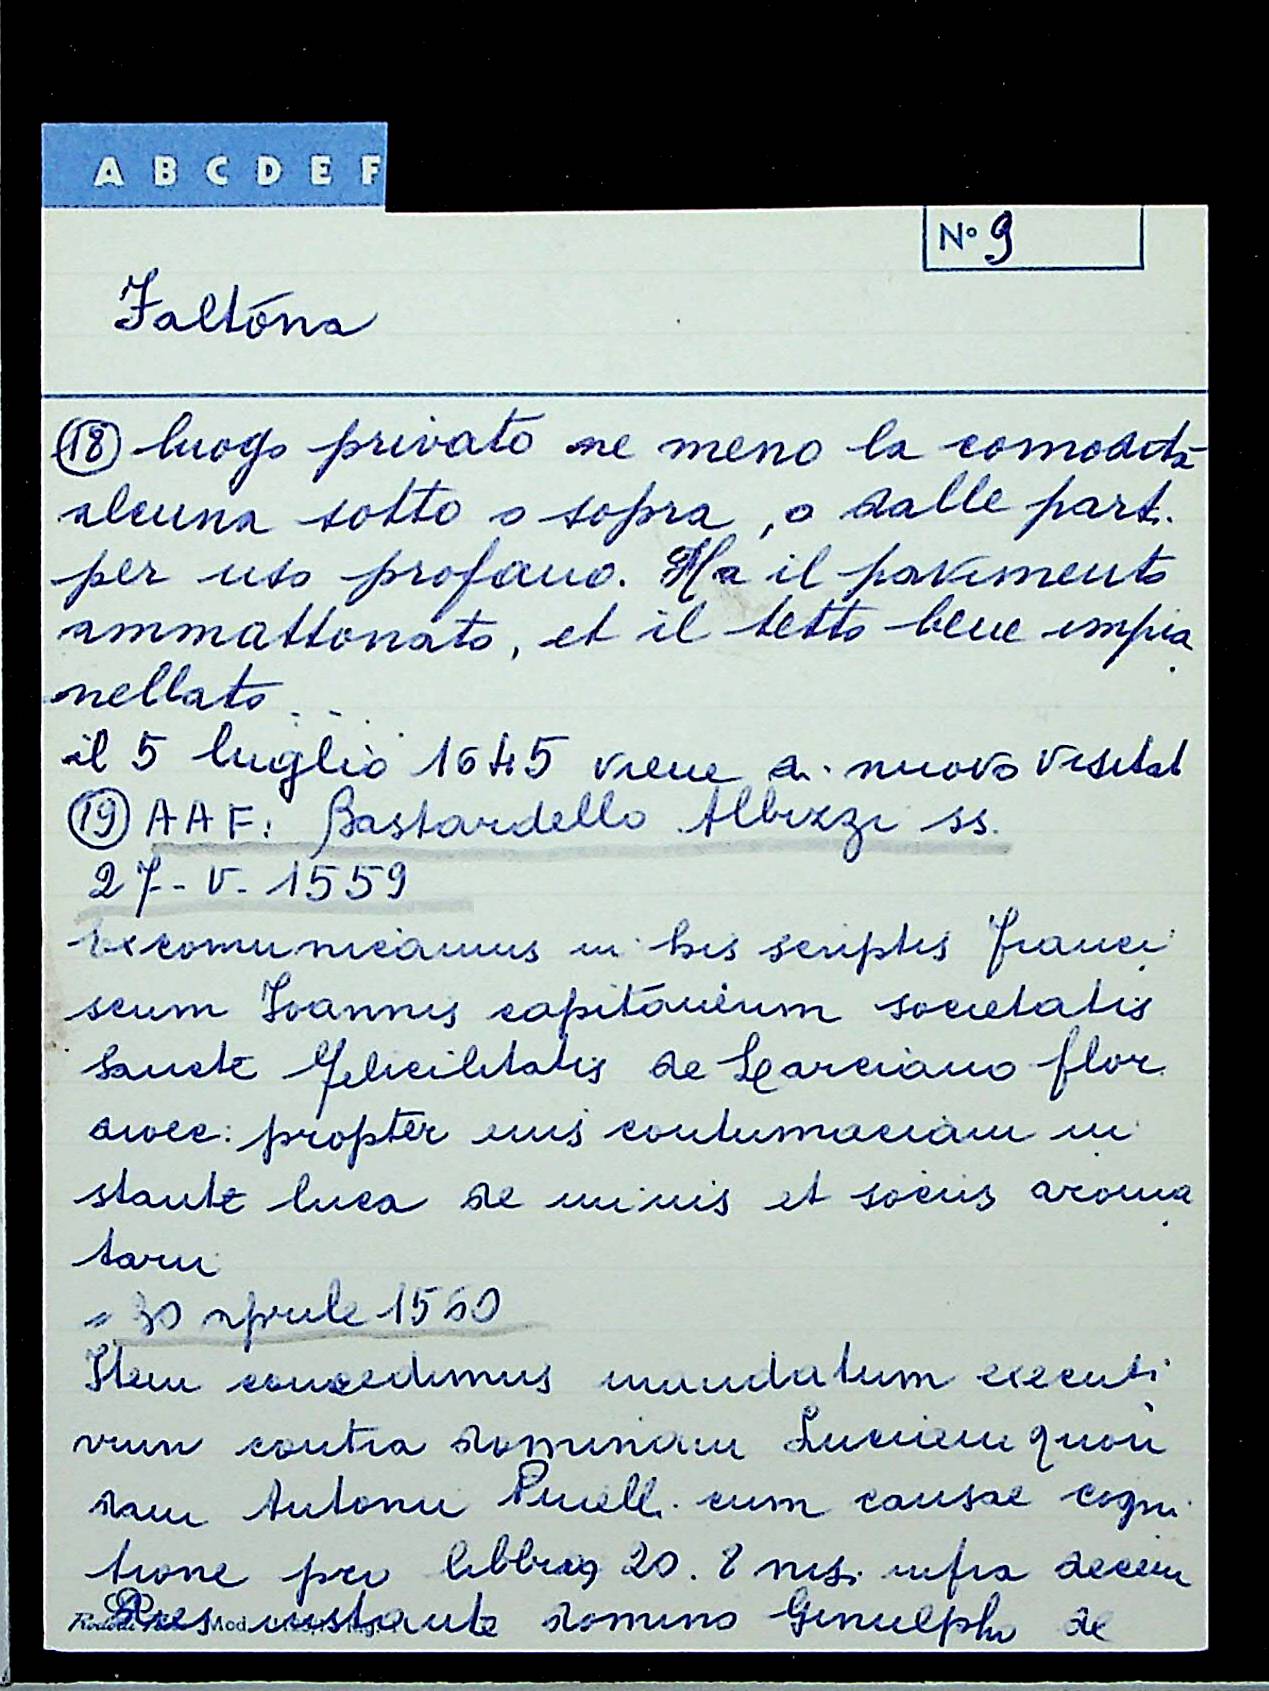 A B C D E F
N° 9
Faltóna
(18) luogo privato ne meno la comodità
alcuna sotto o sopra, o dalle part.
per uso profano. Ha il pavimento
ammattonato, et il tetto bene impia
nellato...
il 5 luglio 1645 viene di nuovo visitat
(19) AAF: Bastardello Albizzi ss.
27-V-1559
Excomunicamus in his scriptis Franci
scum Ioannis capitaneum societatis
Sancte Felicitatis de Larciano flor.
dioec: propter eius contumaciam in
stante luca de minis et sociis aroma
tarii
= 30 aprile 1560
Item concedimus mandatum executi
vum contra dominam Luciam quon
dam Antonii cum causae cogni
tione pro libbris 20. 8 nisi infra decem
dies instante domino de